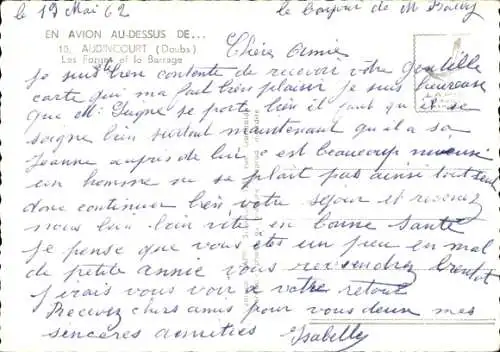 le 19 Mai 62
le Bonjour de M
EN AVION AU-DESSUS DE...
10. AUDINCOURT (Doubs)
Les Forges et le Barrage
Chère Amie
Je suis très bien contente de recevoir votre gentille
carte qui ma fait bien plaisir je suis heureuse
que Mr se porte bien il faut qu'il se
soigne bien surtout maintenant qu'il a sa
Jeanne auprès de lui c est beaucoup
un homme ne se plait pas ainsi tout seul
donc continuer bien votre sejour et revenez
nous bien vite en bonne santé
Je pense que vous etes un peu en mal
de petite annie vous reviendrez bientot
j irais vous voir a votre retour
Recevez chers amis pour vous deux mes
sencères amitiées Isabelle